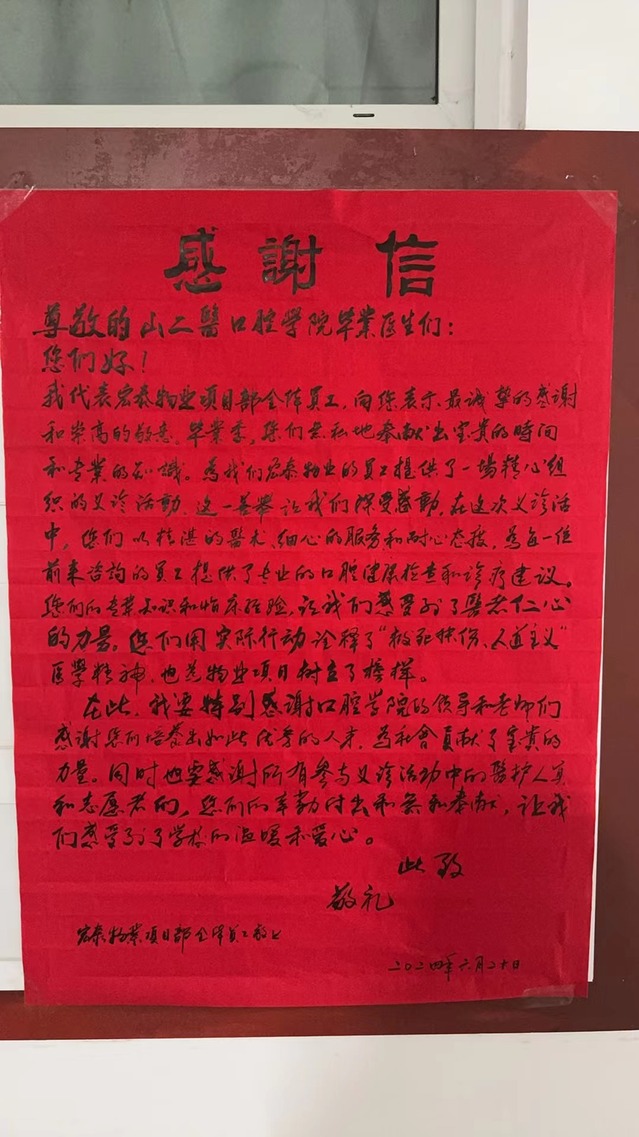 感謝信
尊敬的山二醫口腔学院毕業医生们：
您们好！
我代表宏泰物业项目部全体員工，向您表示最誠挚的感谢
和崇高的敬意。毕業季，您们无私地奉献出宝貴的時间
和专業的知識。為我们宏泰物业的員工提供了一場精心组
织的义诊活動，这一善举让我们深受感動。在这次义诊活
中，您们以精湛的醫术、细心的服务和耐心态度，為每一位
前来咨詢的員工提供了专业的口腔健康检查和诊疗建议。
您们的专業知识和临床经验，让我们感受到了醫者仁心
的力量。您们用实际行动诠释了“救死扶伤、人道主义”
医學精神，也為物业项目树立了榜样。
在此，我要特别感谢口腔学院的领导和老师们
感谢您们培養出如此优秀的人才，為社會貢献了宝貴的
力量。同时也要感谢所有参与义诊活动中的醫护人員
和志愿者们，您们的辛勤付出和無私奉献，让我
们感受到了学校的温暖和爱心。
此致
敬礼
宏泰物業项目部全体員工敬上
二〇二四年六月二十日